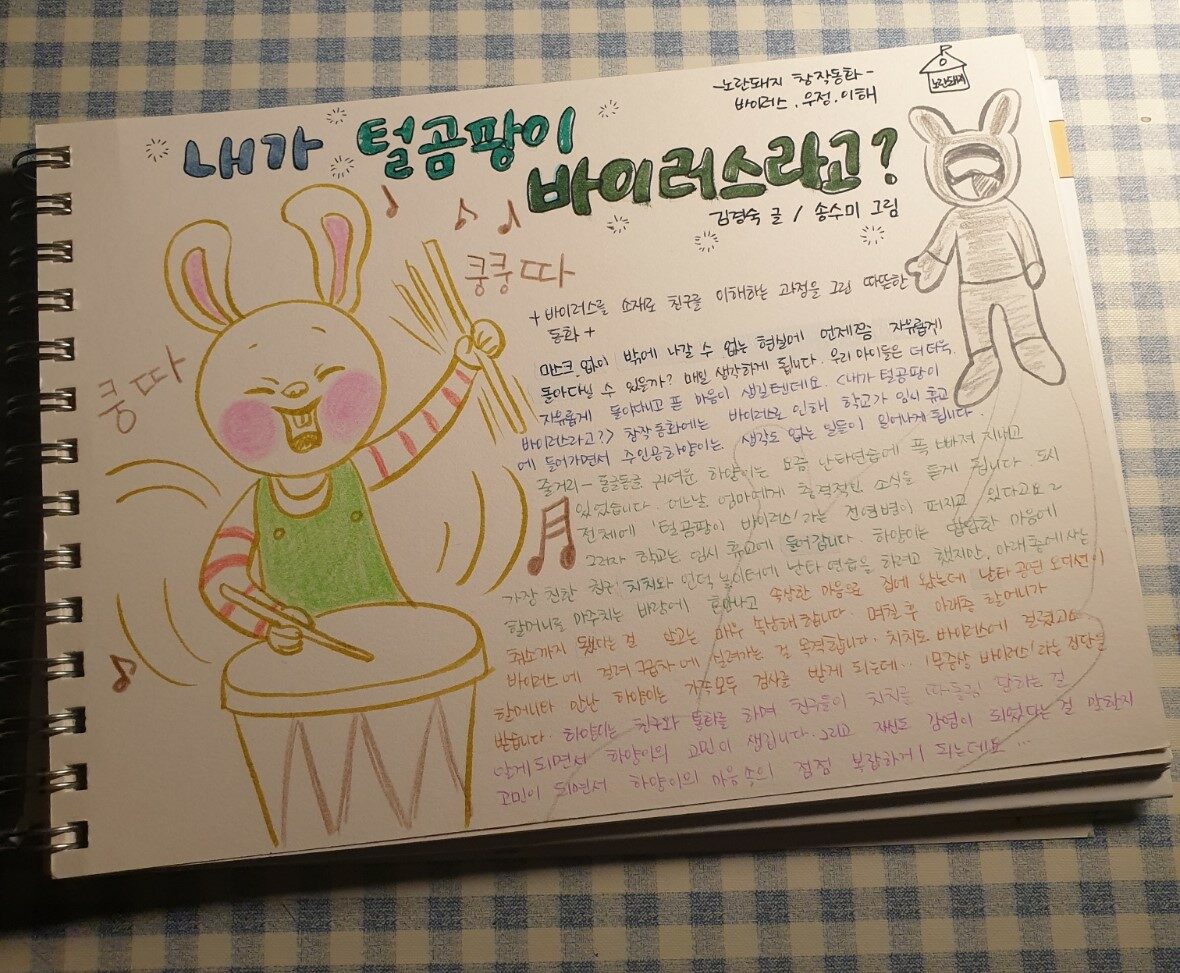 -노란돼지 창작동화-
바이러스. 우정. 이해
노란돼지
내가 털곰팡이
바이러스라고?
김경숙 글 / 송수미 그림
쿵쿵따
쿵따
+ 바이러스를 소재로 친구를 이해하는 과정을 그린 따뜻한
동화 +
마스크 없이 밖에 나갈 수 없는 현실에 언제쯤 자유롭게
돌아다닐 수 있을까? 매일 생각하게 됩니다. 우리 아이들은 더더욱
자유롭게 돌아다니고 픈 마음이 생길텐데요. <내가 털곰팡이
바이러스라고?> 창작동화에는 바이러스로 인해 학교가 임시 휴교
에 들어가면서 주인공하양이는 생각도 없는 일들이 일어나게 됩니다.
줄거리- 동글동글 귀여운 하양이는 요즘 난타연습에 푹 빠져 지내고
있었습니다. 어느날 엄마에게 충격적인 소식을 듣게 됩니다. 도시
전체에 '털곰팡이 바이러스'라는 전염병이 퍼지고 있다고요
그러자 학교는 임시 휴교에 들어갑니다. 하양이는 답답한 마음에
가장 친한 친구 치치와 언덕 놀이터에 난타 연습을 하려고 했지만, 아래층에 사는
할머니로 마주치는 바람에 혼나고 속상한 마음으로 집에 왔는데 난타 공연 오디션이
취소까지 됐다는 걸 알고는 매우 속상해합니다. 며칠 후 아래층 할머니가
바이러스에 걸려 구급차에 실려가는 걸 목격합니다. 치치도 바이러스에 걸렸고
할머니와 만난 하양이는 가족모두 검사를 받게 되는데.. '무증상 바이러스'라는 진단을
받습니다. 하양이는 친구와 통화를 하며 친구들이 치치를 따돌림 당하는 걸
알게되면서 하양이의 고민이 생깁니다. 그리고 자신도 감염이 되었다는 걸 말할지
고민이 되면서 하양이의 마음속의 점점 복잡하게 되는데요...